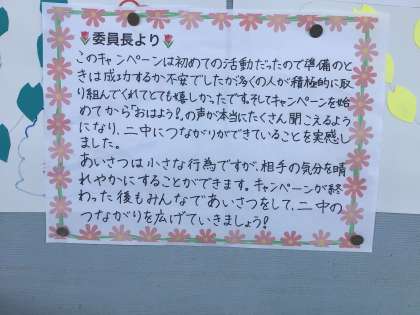 委員長より
このキャンペーンは初めての活動だったので準備のと
きは成功するか不安でしたが多くの人が積極的に取
り組んでくれてとても嬉しかったです。そしてキャンペーンを始
めてから「おはよう!」の声が本当にたくさん聞こえるよう
になり、二中につながりができていることを実感し
ました。
あいさつは小さな行為ですが、相手の気分を晴
れやかにすることができます。キャンペーンが終
わった後もみんなであいさつをして、二中の
つながりを広げていきましょう!